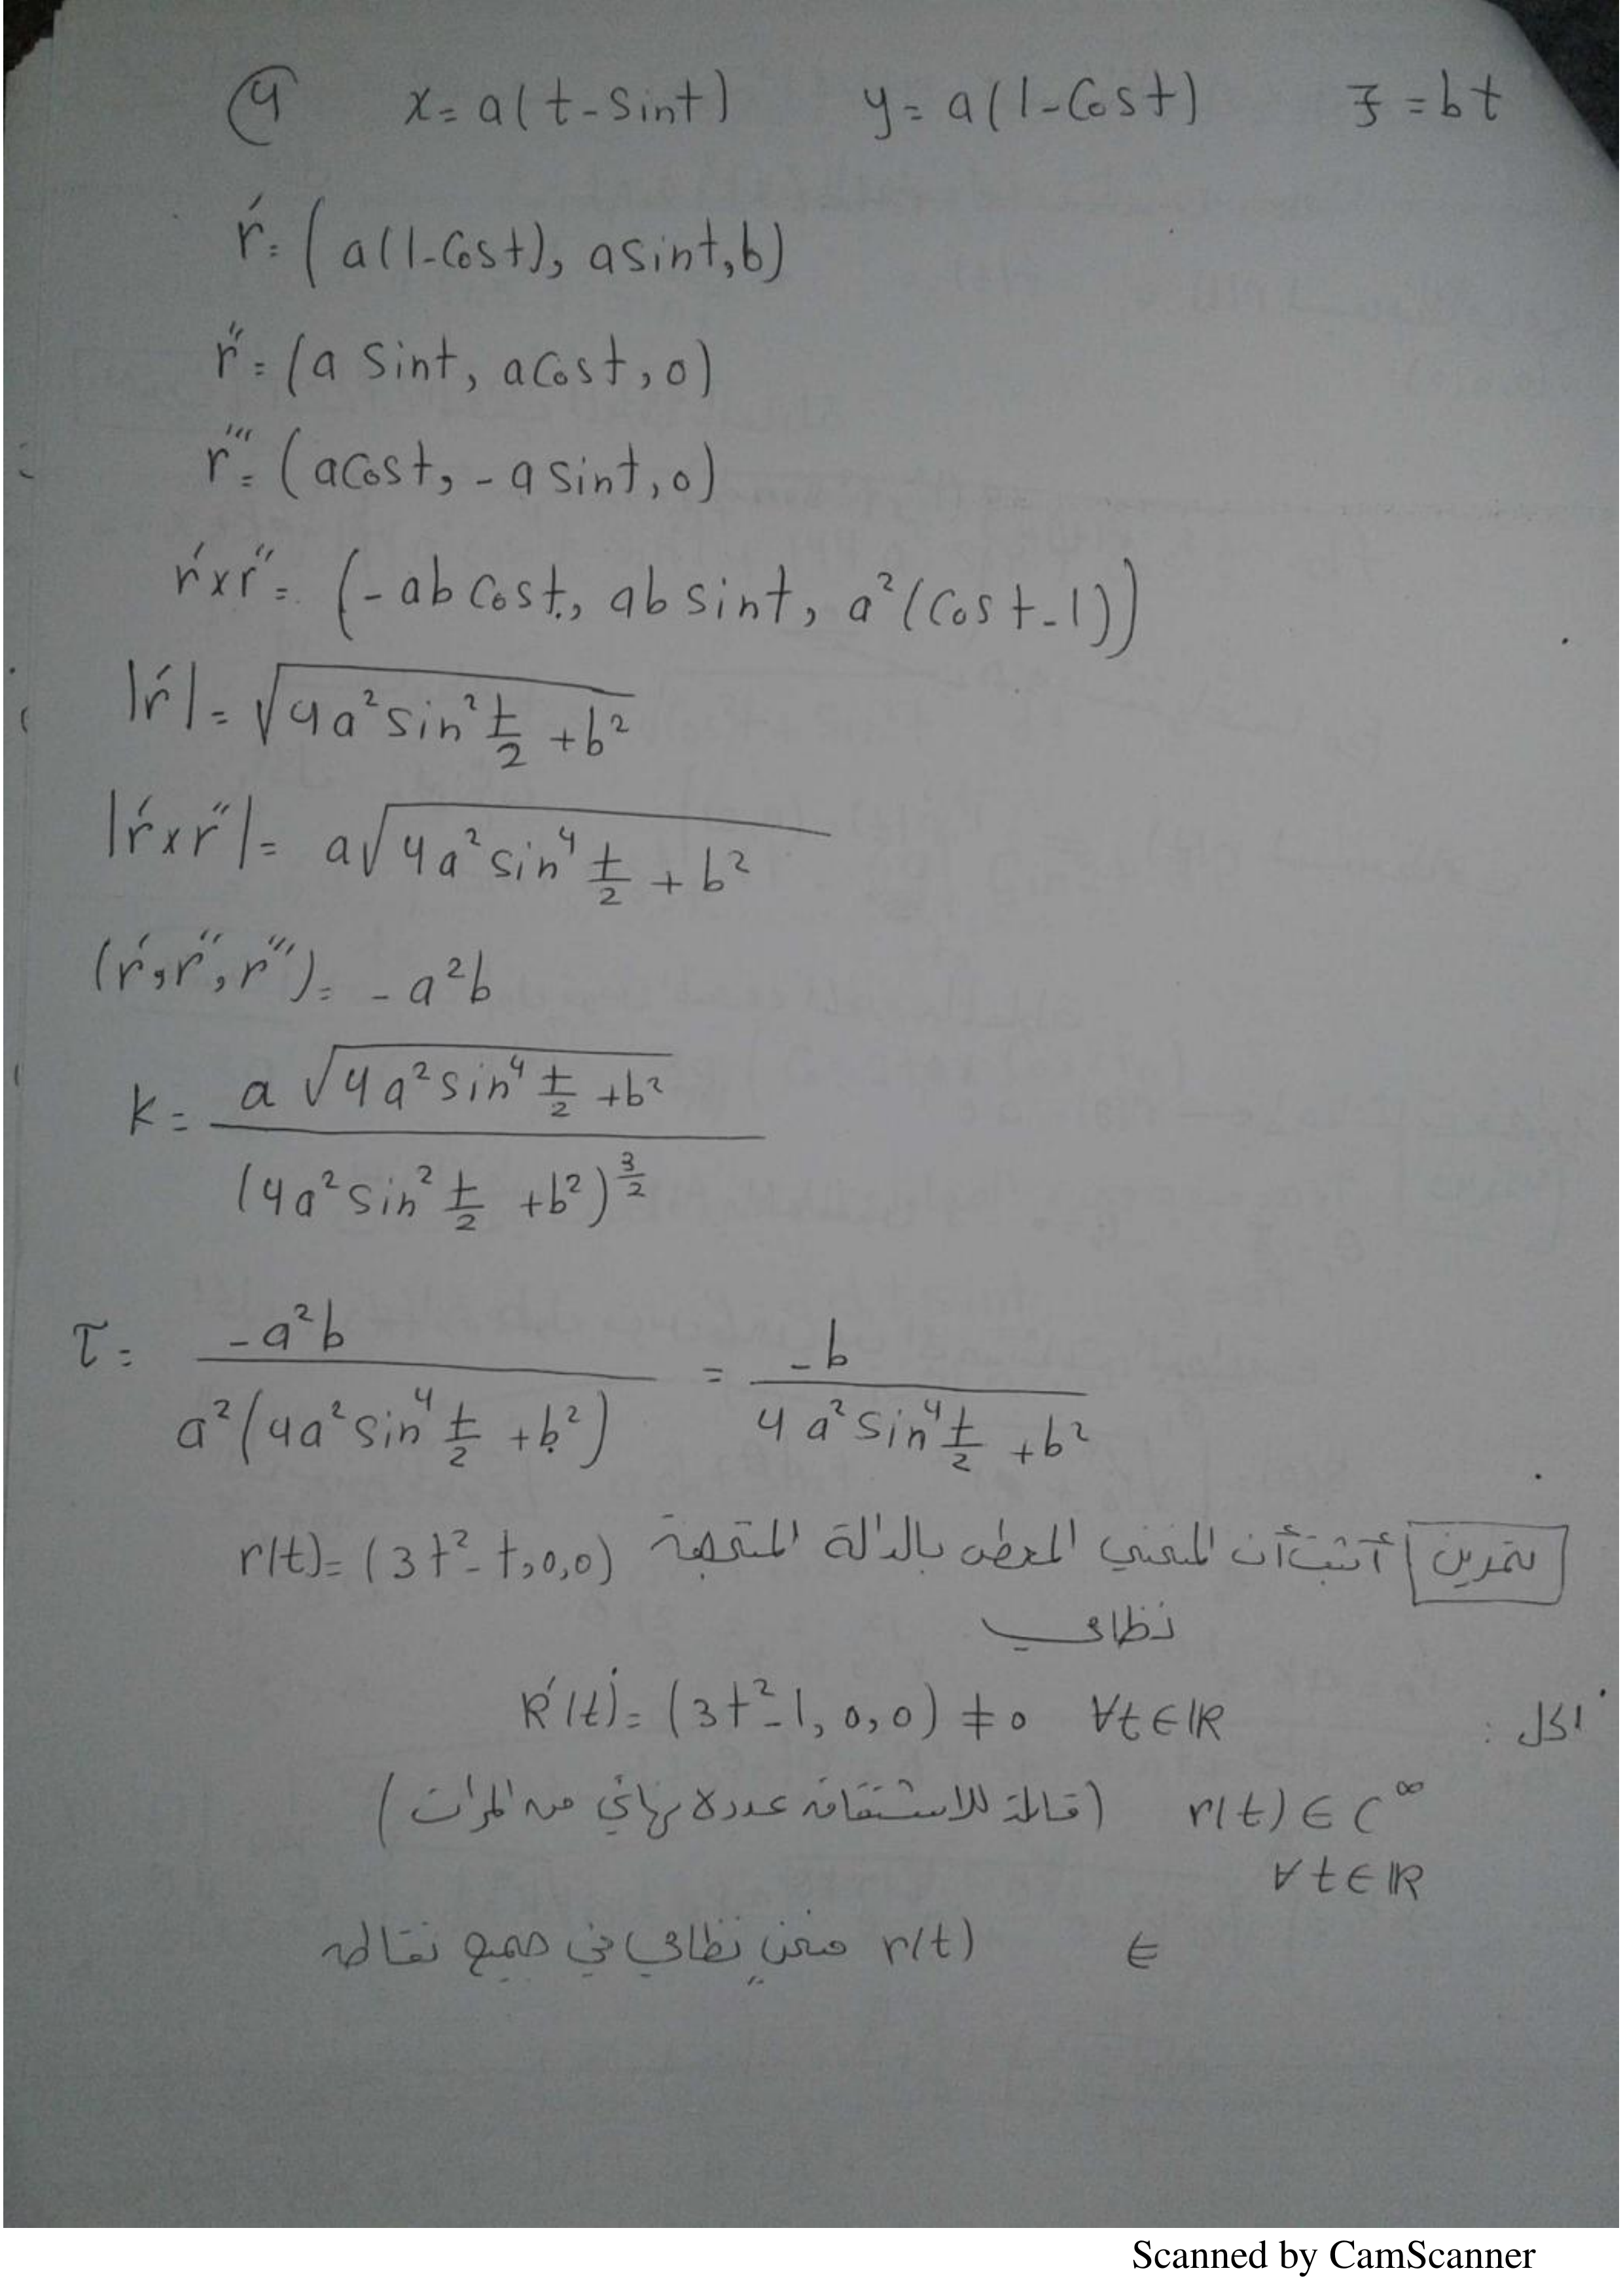 ④ x = a(t - sint) y = a(1 - Cost) z = bt
r' = (a(1-Cost), asint, b)
r'' = (a sint, a Cost, 0)
r''' = (a Cost, - a sint, 0)
r' x r'' = (-ab Cost, ab sint, a²(Cost - 1))
|r'| = √(4a² sin² t/2 + b²)
|r' x r''| = a√(4a² sin⁴ t/2 + b²)
(r', r'', r''') = - a²b
K = a √(4a² sin⁴ t/2 + b²) / (4a² sin² t/2 + b²)^(3/2)
τ = -a²b / a²(4a² sin⁴ t/2 + b²) = -b / 4a² sin⁴ t/2 + b²
تمرين أثبت أن المنحني المعطى بالدالة المتجهة r(t) = (3t² - t, 0, 0)
نظامي
الحل : R'(t) = (3t² - 1, 0, 0) ≠ 0 ∀t ∈ ℝ
r(t) ∈ C^∞ (قابلة للاشتقاق عدد نهائي من المرات)
∀t ∈ ℝ
∈ r(t) منحنٍ نظامي في جميع نقاطه
Scanned by CamScanner